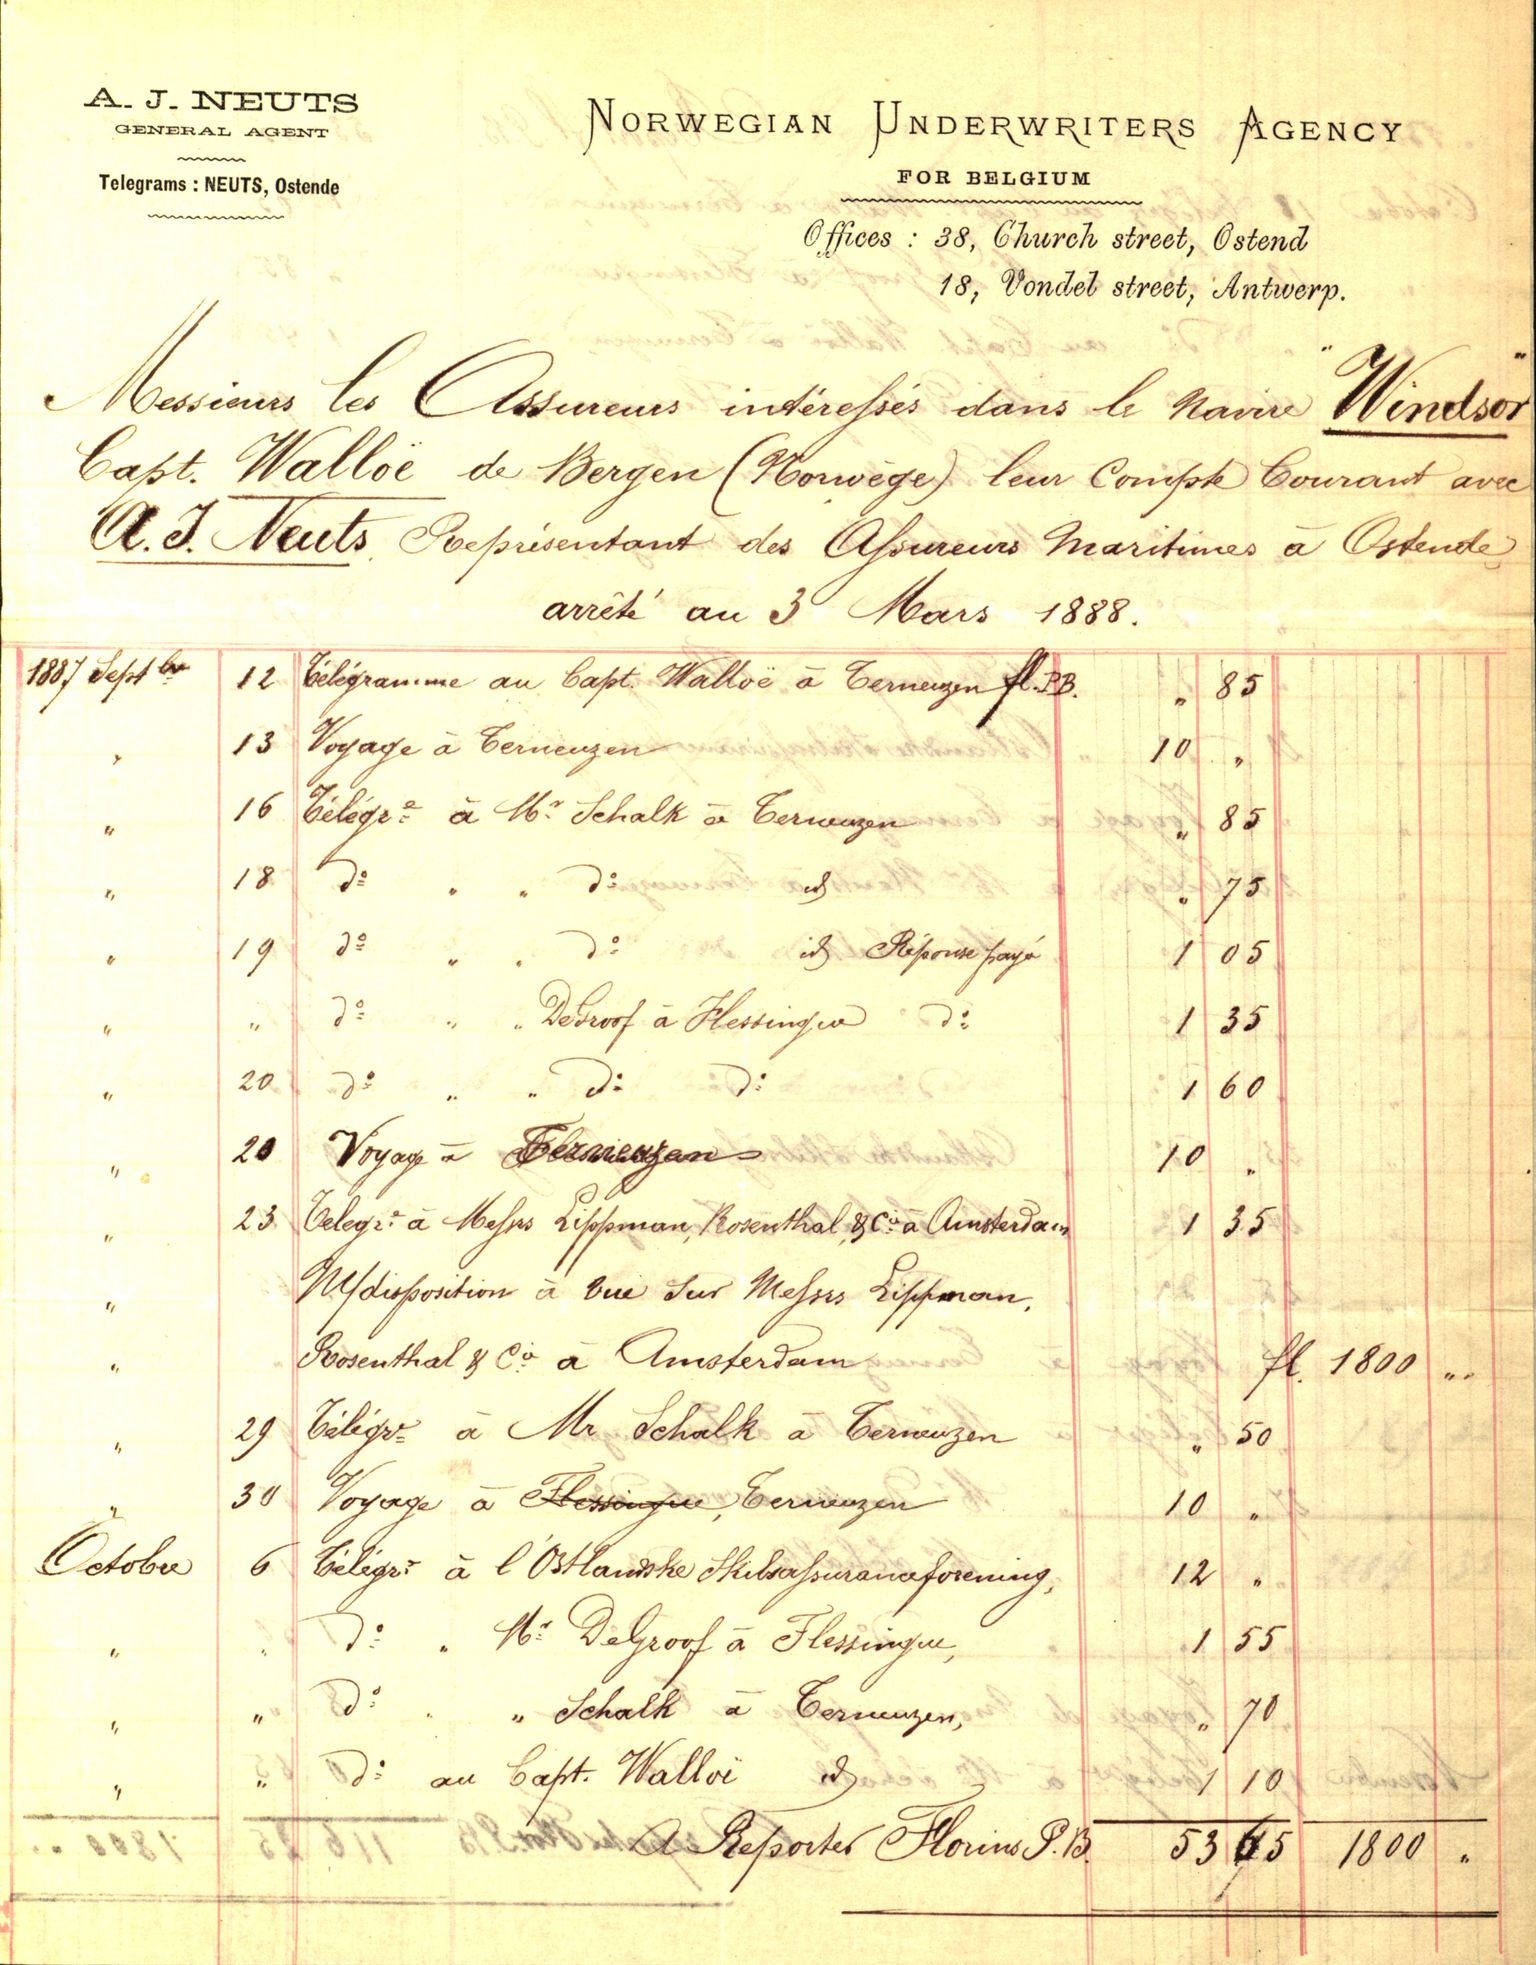 A. J. NEUTS
GENERAL AGENT
Telegrams : NEUTS, Ostende
NORWEGIAN UNDERWRITERS AGENCY
FOR BELGIUM
Offices : 38, Church street, Ostend
18, Vondel street, Antwerp.
Messieurs les Assureurs intéressés dans le navire "Windsor"
Capt. Walloë de Bergen (Norwège) leur Compte Courant avec
A. J. Neuts, Représentant des Assureurs Maritimes à Ostende
arrêté au 3 Mars 1888.
1887 Septbre 12 Télégramme au Capt. Walloë à Terneuzen fl. P.B. " 85
" 13 Voyage à Terneuzen 10 "
" 16 Télégre à Mr Schalk à Terneuzen " 85
" 18 do " " do id " 75
" 19 do " " do id Réponse payé 1 05
" " do " " DeGroof à Flessingue do 1 35
" 20 do " " do do 1 60
" 20 Voyage à Terneuzen 10 "
" 23 Telegr. à Messrs Lippman, Rosenthal, & Co à Amsterdam 1 35
" M/disposition à vue sur Messrs Lippman,
" Rosenthal & Co à Amsterdam fl. 1800 "
" 29 Télégr. à Mr Schalk à Terneuzen " 50
" 30 Voyage à Flessingue, Terneuzen 10 "
Octobre 6 Télégr. à l'Ostlandske Skibsassuranceforening, 12 "
" " do " Mr DeGroof à Flessingue, 1 55
" " do " " Schalk à Terneuzen, " 70
" " do au Capt. Walloë id 1 10
A Reporter Florins P.B. 53 65 1800 "